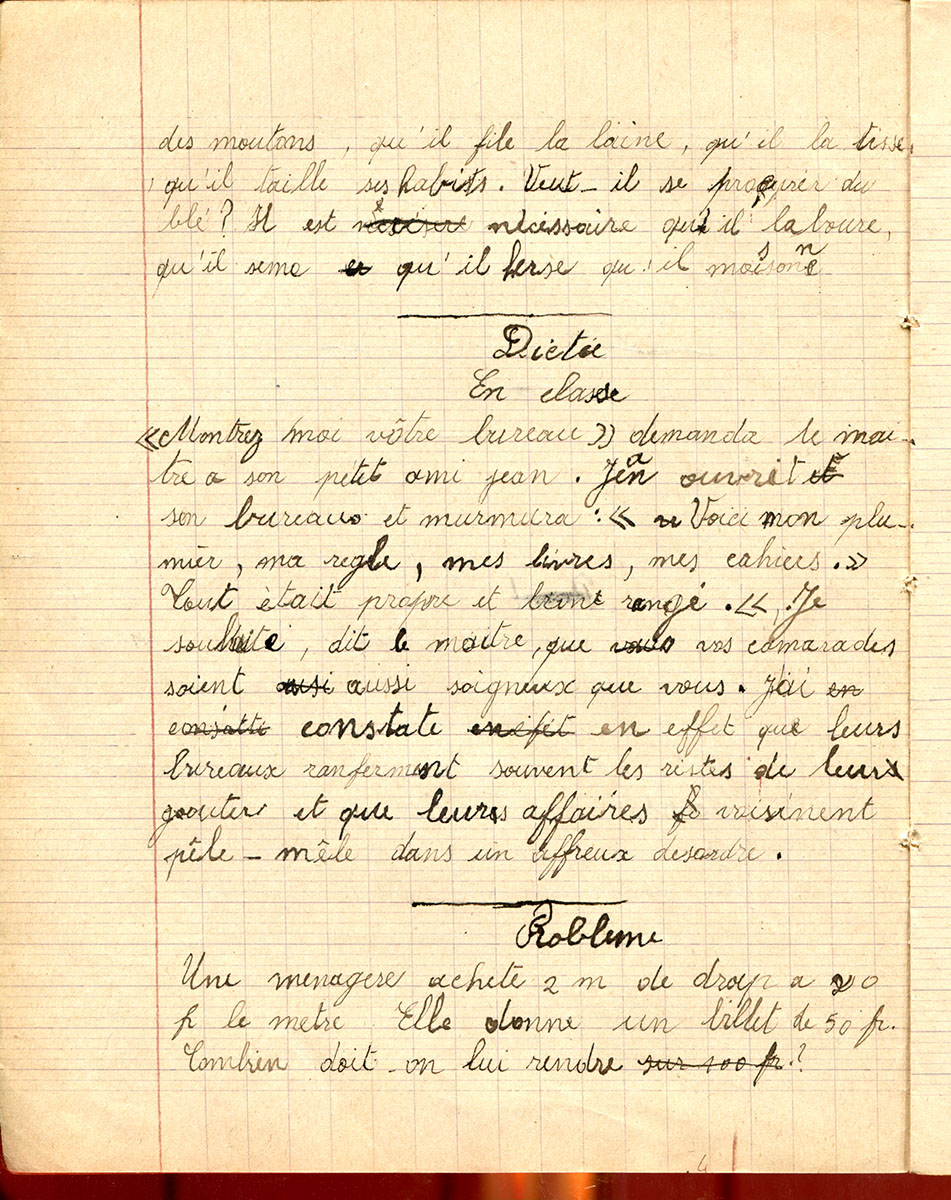 des moutons, qu'il file la laine, qu'il la tisse,
qu'il taille ses habits. Veut-il se procurer du
blé? Il est nécessaire qu'il laboure,
qu'il seme qu'il herse qu'il moissonne
Dictée
En classe
«Montrez moi vôtre bureau» demanda le mai-
tre a son petit ami jean. Jean ouvrit
son bureau et murmura : « Voici mon plu-
mier, ma regle, mes livres, mes cahiers.»
Tout ètait propre et rangé. « Je
souhaite, dit le maitre, que vos camarades
soient aussi soigneux que vous. J'ai en
constate en effet que leurs
bureaux ranferment souvent les restes de leurs
gouter et que leurs affaires voisinent
pêle-mêle dans un affreux desordre.
Probleme
Une menagere achete 2 m de drap a 20
f le metre Elle donne un billet de 50 fr.
Combien doit-on lui rendre sur 100 fr.?